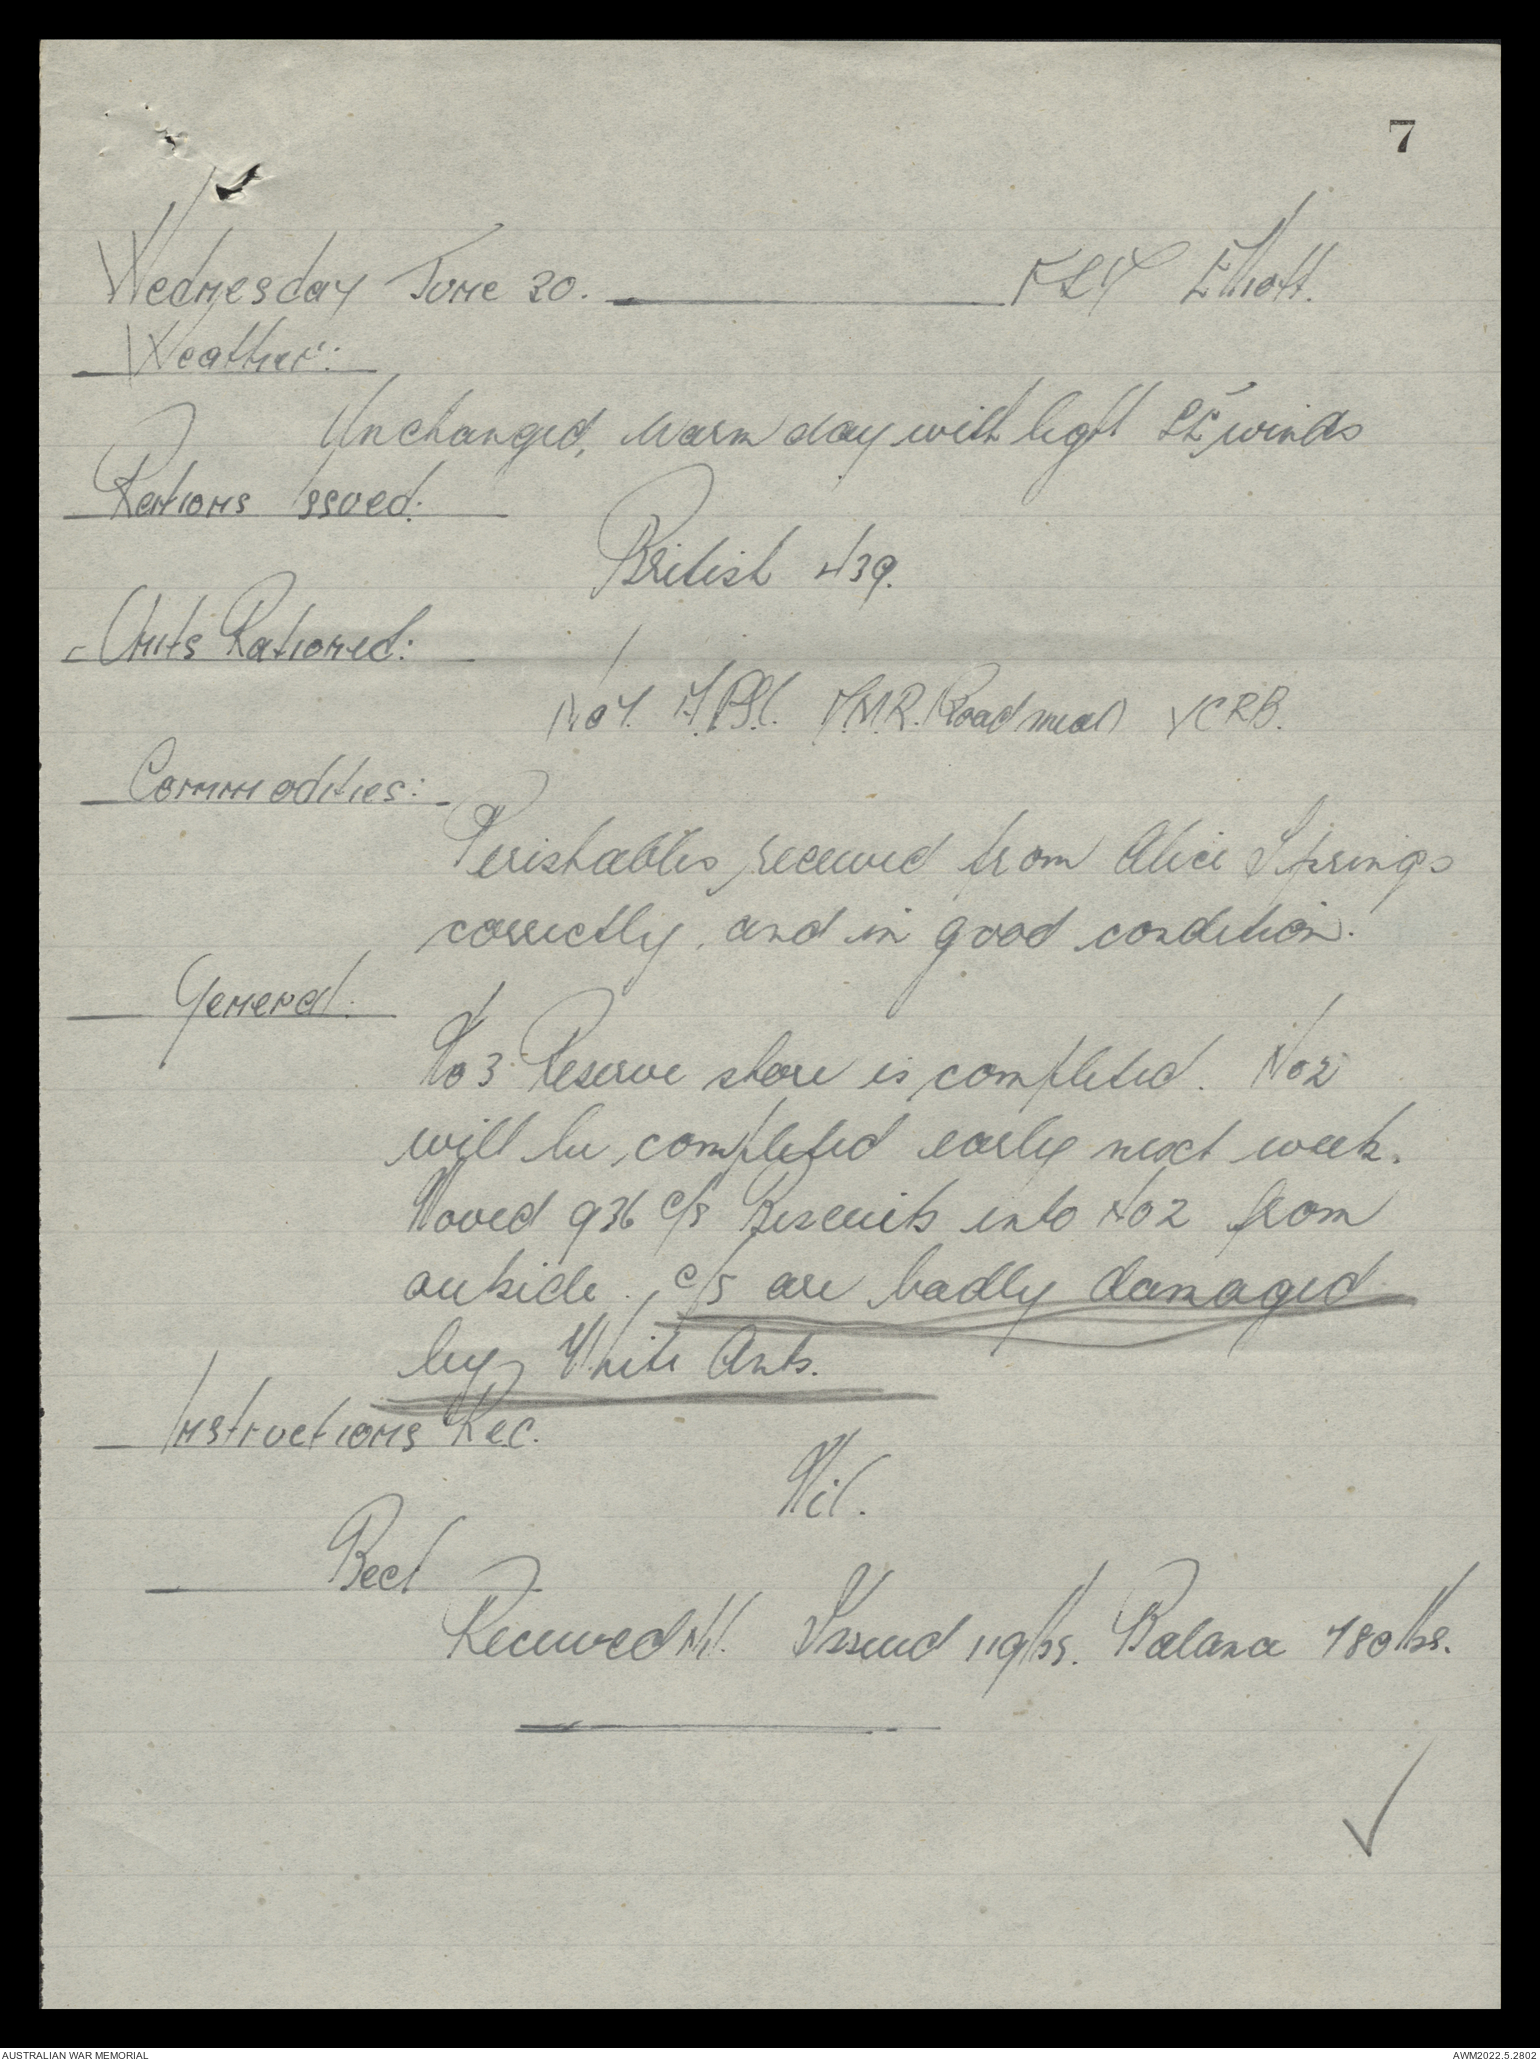 7
Wednesday June 20. Elliott.
Weather:
Unchanged, warm day with light SE winds
Rations Issued:
British 439.
Units Rationed:
Roadmean CRB.
Commodities:
Perishables received from Alice Springs
correctly, and in good condition.
General.
No 3 Reserve store is completed. No 2
will be completed early next week.
Moved 936 c/s Biscuits into No 2 from
outside. c/s are badly damaged
by White Ants.
Instructions Rec.
Nil.
Beef
Received Nil. Issued 119 lbs. Balance 780 lbs.
AUSTRALIAN WAR MEMORIAL
AWM2022.5.2802